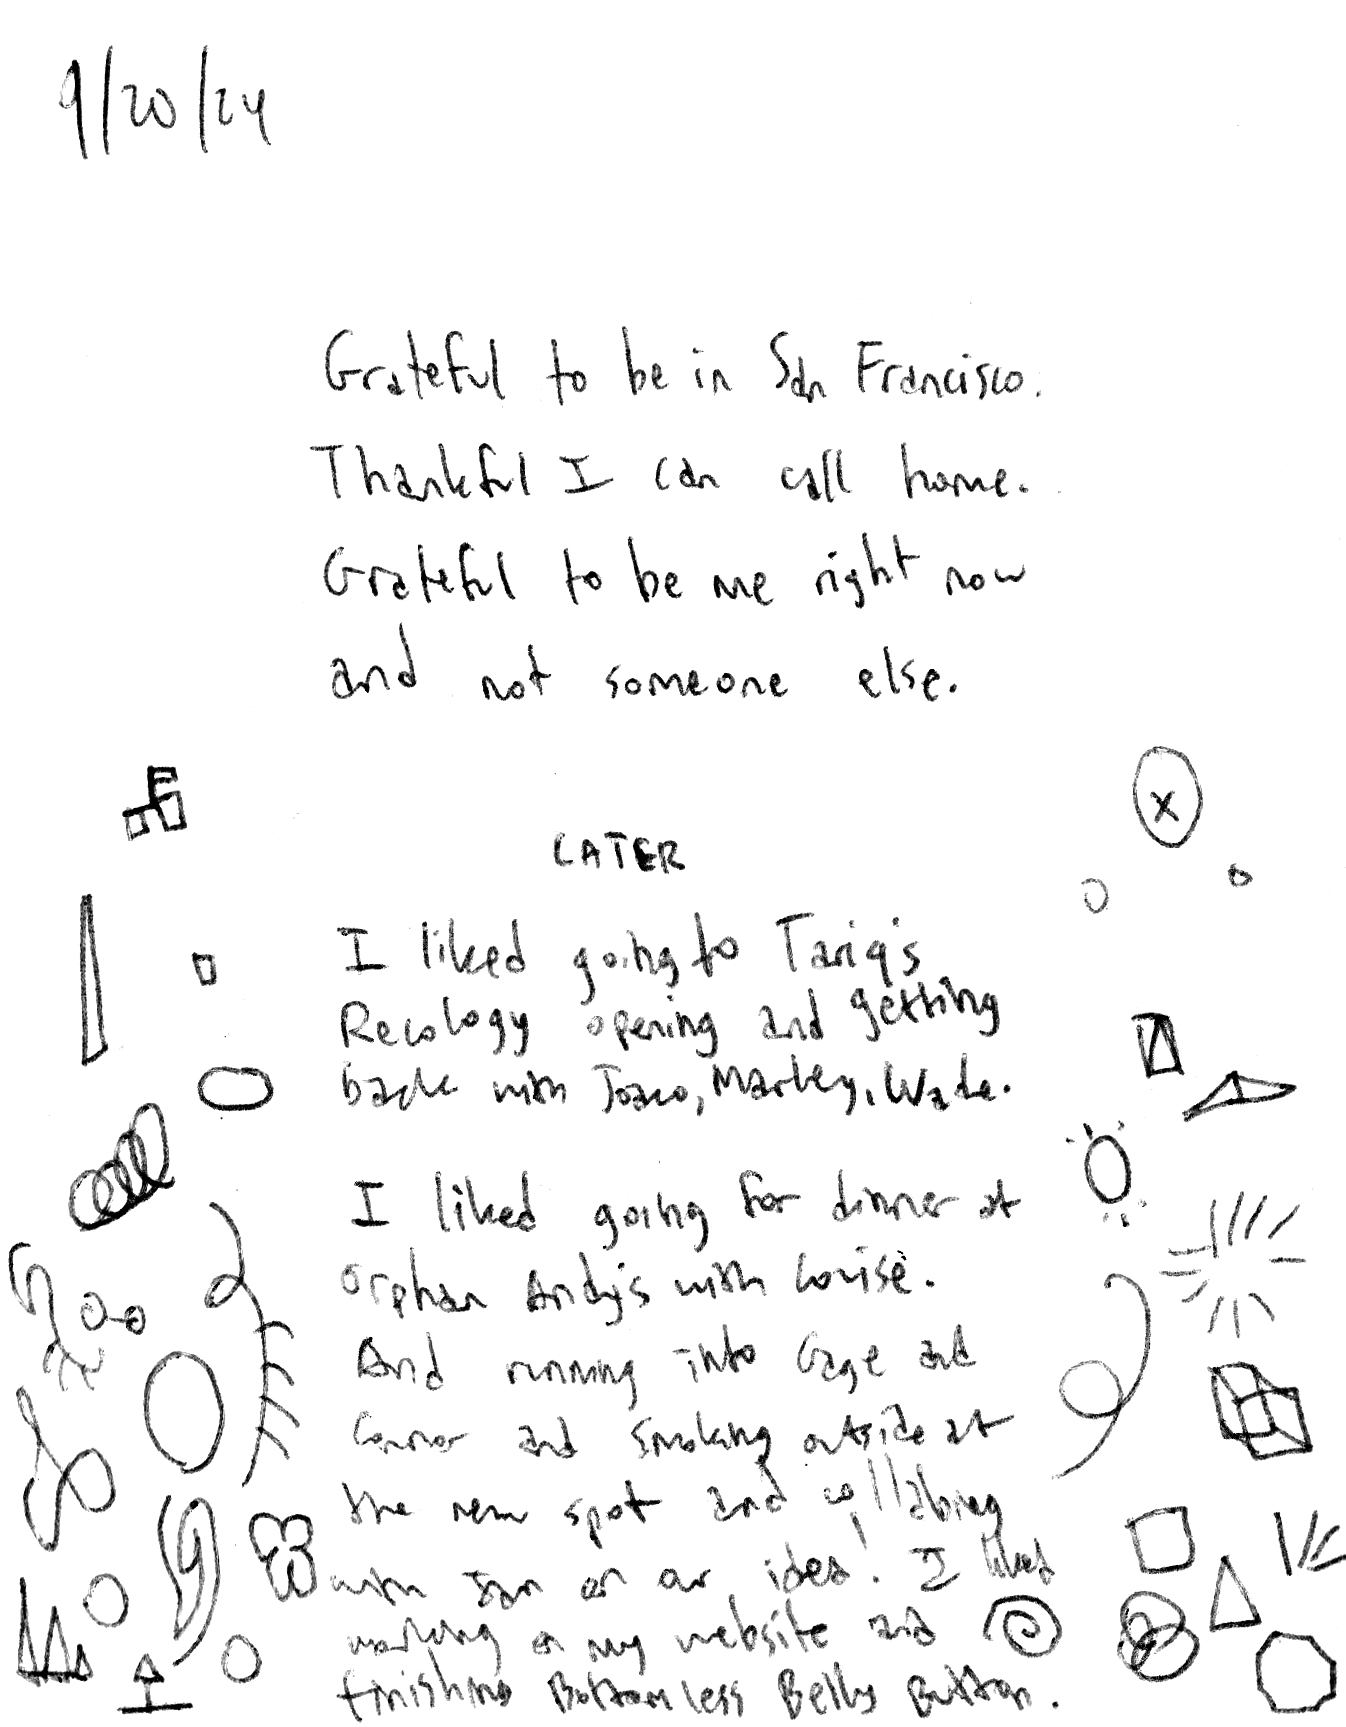 9/20/24
Grateful to be in San Francisco.
Thankful I can call home.
Grateful to be me right now
and not someone else.
X
LATER
I liked going to Tariq's
Recology opening and getting
back with Joaco, Marley, Wade.
I liked going for dinner at
Orphan Andy's with Louise.
And running into Gage and
Connor and smoking outside at
the new spot and collabing
with Jan on our idea! I liked
working on my website and
finishing Bottomless Belly Button.